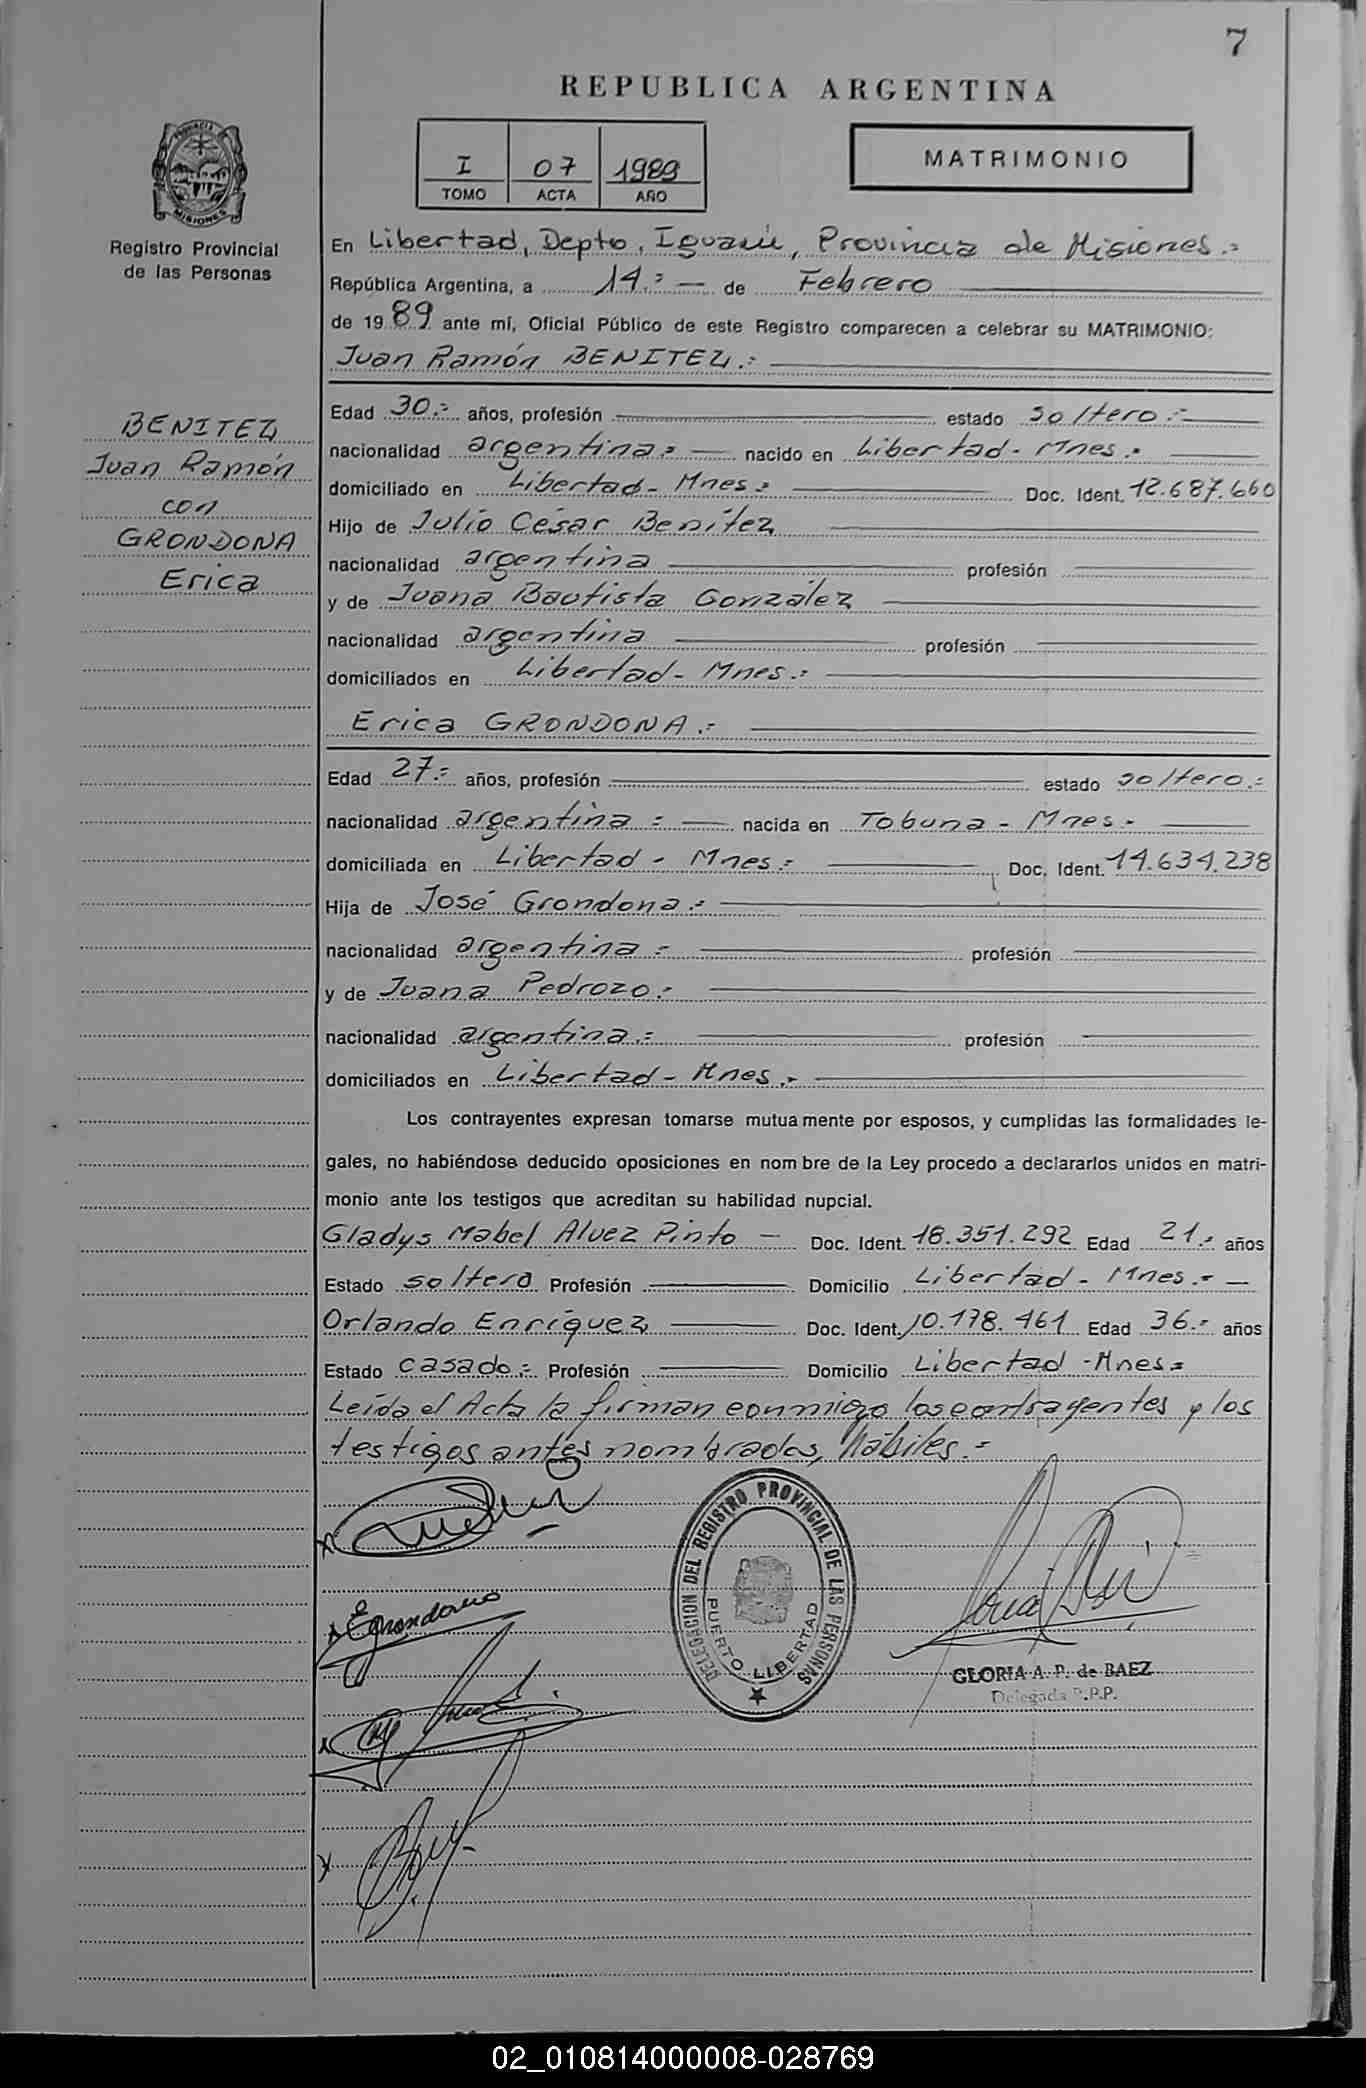 7
REPUBLICA ARGENTINA
I 07 1989
TOMO ACTA AÑO
MATRIMONIO
PROVINCIA DE MISIONES
Registro Provincial
de las Personas
En Libertad, Depto, Iguazú, Provincia de Misiones.=
República Argentina, a 14.= de Febrero
de 1989 ante mí, Oficial Público de este Registro comparecen a celebrar su MATRIMONIO:
Juan Ramón BENITEZ.=
BENITEZ
Juan Ramón
con
GRONDONA
Erica
Edad 30.= años, profesión estado soltero.=
nacionalidad argentina.= nacido en Libertad - Mnes.=
domiciliado en Libertad - Mnes.= Doc. Ident. 12.687.660
Hijo de Julio César Benítez
nacionalidad argentina profesión
y de Juana Bautista González
nacionalidad argentina profesión
domiciliados en Libertad - Mnes.=
Erica GRONDONA.=
Edad 27.= años, profesión estado soltero.=
nacionalidad argentina = nacida en Tobuna - Mnes.-
domiciliada en Libertad - Mnes.= Doc. Ident. 14.634.238
Hija de José Grondona.=
nacionalidad argentina = profesión
y de Juana Pedrozo.=
nacionalidad argentina.= profesión
domiciliados en Libertad - Mnes.-
Los contrayentes expresan tomarse mutuamente por esposos, y cumplidas las formalidades le-
gales, no habiéndose deducido oposiciones en nombre de la Ley procedo a declararlos unidos en matri-
monio ante los testigos que acreditan su habilidad nupcial.
Gladys Mabel Alvez Pinto - Doc. Ident. 18.351.292 Edad 21.= años
Estado soltera Profesión Domicilio Libertad - Mnes.= -
Orlando Enríquez Doc. Ident. 10.178.461 Edad 36.= años
Estado casado.= Profesión Domicilio Libertad - Mnes=
Leída el Acta la firman conmigo los contrayentes y los
testigos antes nombrados, hábiles.=
EGrondona
DELEGACION DEL REGISTRO PROVINCIAL DE LAS PERSONAS
PUERTO LIBERTAD
GLORIA A. P. de BAEZ
Delegada R.P.P.
02_010814000008-028769